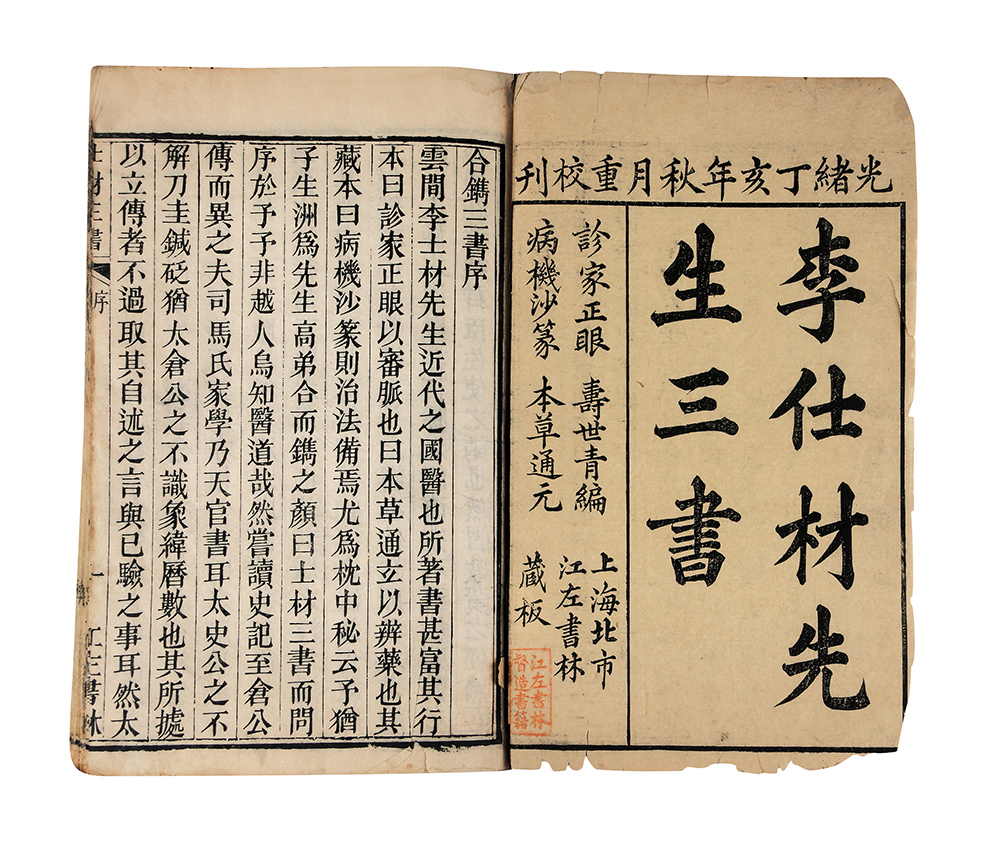 光緒丁亥年秋月重校刊
李仕材先
生三書
診家正眼 壽世青編
病機沙篆 本草通元
上海北市
江左書林
藏板
江左書林
督造書籍
合鐫三書序
雲間李士材先生近代之國醫也所著書甚富其行
本曰診家正眼以審脈也曰本草通玄以辨藥也其
藏本曰病機沙篆則治法備焉尤爲枕中秘云予猶
子生洲爲先生高弟合而鐫之顏曰士材三書而問
序於予予非越人烏知醫道哉然嘗讀史記至倉公
傳而異之夫司馬氏家學乃天官書耳太史公之不
解刀圭鍼砭猶太倉公之不識象緯曆數也其所據
以立傳者不過取其自述之言與已驗之事耳然太
士材三書 序 一 江左書林